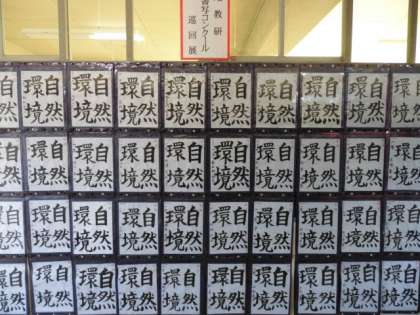 教研
書写コンクール
巡回展
環境
自然
環境
自然
環境
自然
環境
自然
環境
自然
環境
自然
環境
自然
環境
自然
環境
自然
環境
自然
環境
自然
環境
自然
環境
自然
環境
自然
環境
自然
環境
自然
環境
自然
環境
自然
環境
自然
環境
自然
環境
自然
環境
自然
環境
自然
環境
自然
環境
自然
環境
自然
環境
自然
環境
自然
環境
自然
環境
自然
環境
自然
環境
自然
環境
自然
環境
自然
環境
自然